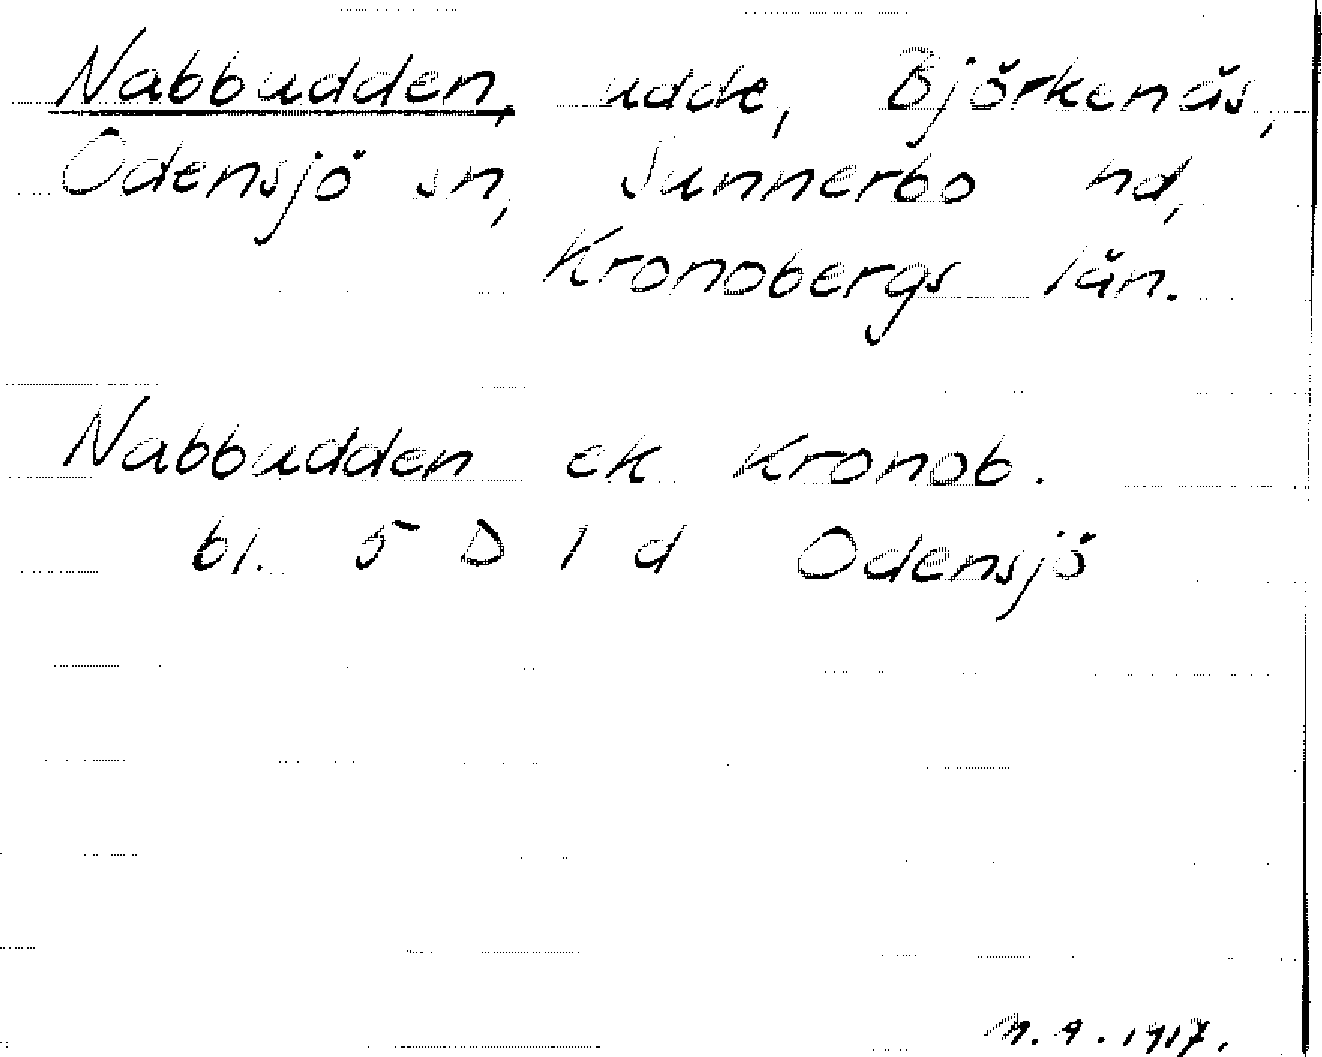 Nabbudden, udde, Björkenäs,
Odensjö sn, Sunnerbo hd,
Kronobergs län.
Nabbudden ek Kronob.
bl. 5 D 1 d Odensjö